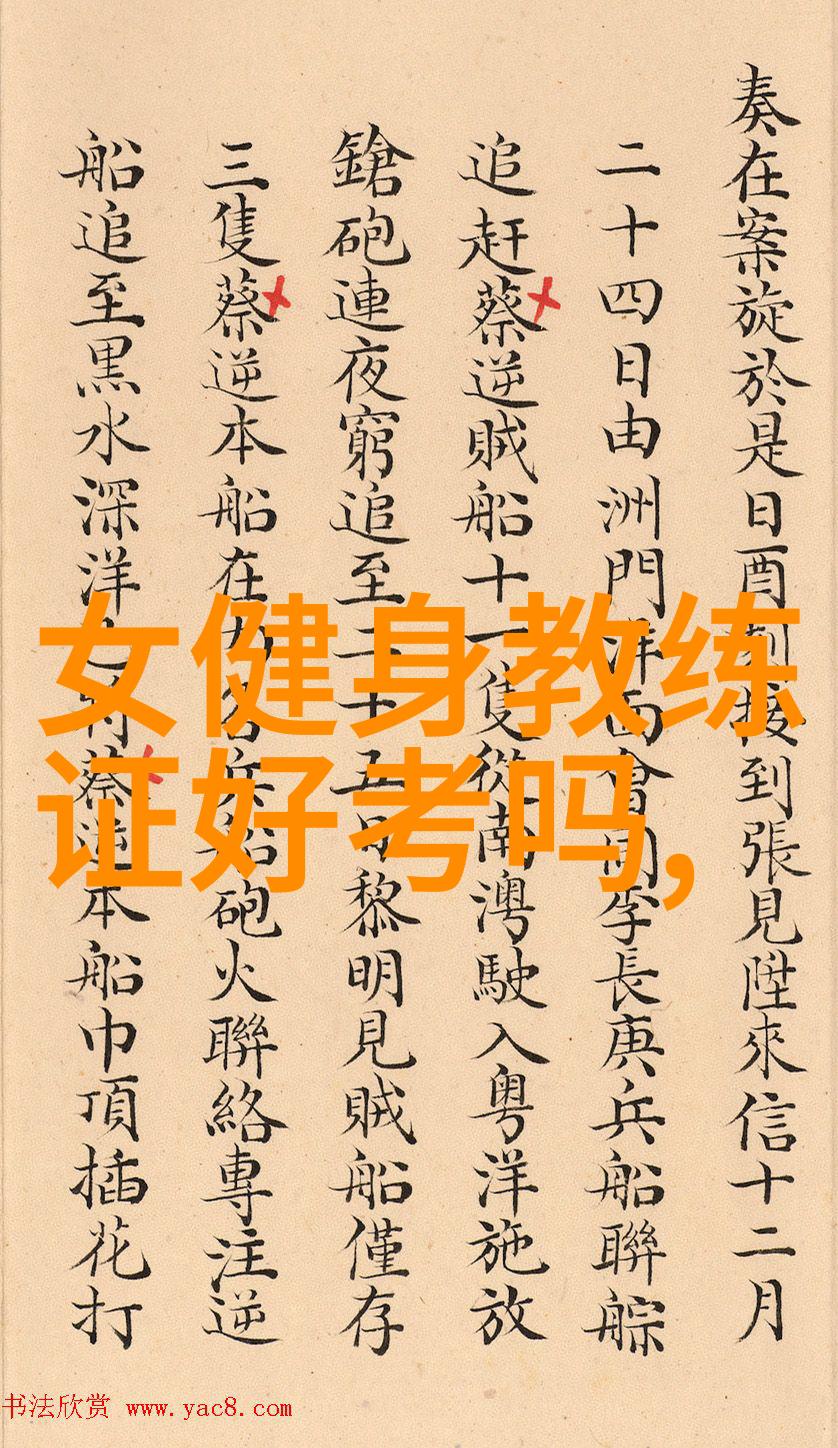 奏在案旋於是日酉刻接到張見陞來信十二月
二十四日由洲門洋面會同李長庚兵船聯䑸
追赶蔡逆賊船十一隻從南澳駛入粵洋施放
鎗砲連夜窮追至二十五日黎明見賊船僅存
三隻蔡逆本船在內各兵船砲火聯絡專注逆
船追至黒水深洋蔡逆本船巾頂插花打
女健身教练
证好考吗,
书法欣赏 www.yac8.com